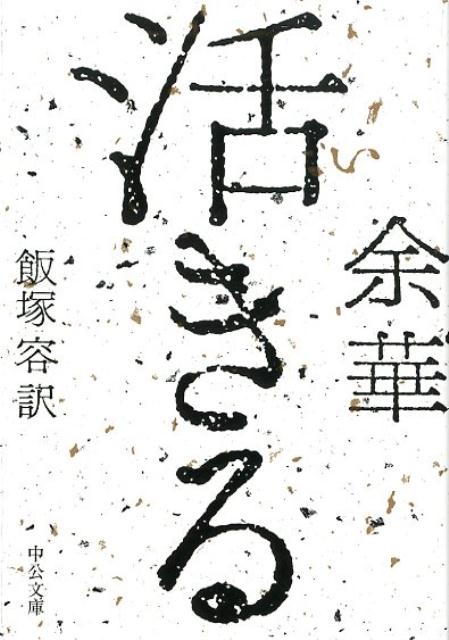 活きる
い
余華
飯塚容訳
中公文庫